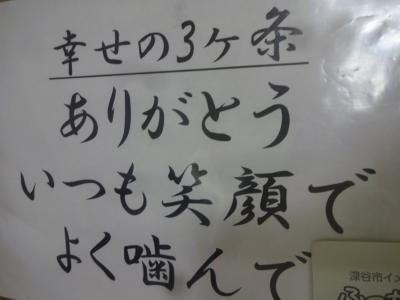 幸せの3ヶ条
ありがとう
いつも笑顔で
よく噛んで
深谷市イ